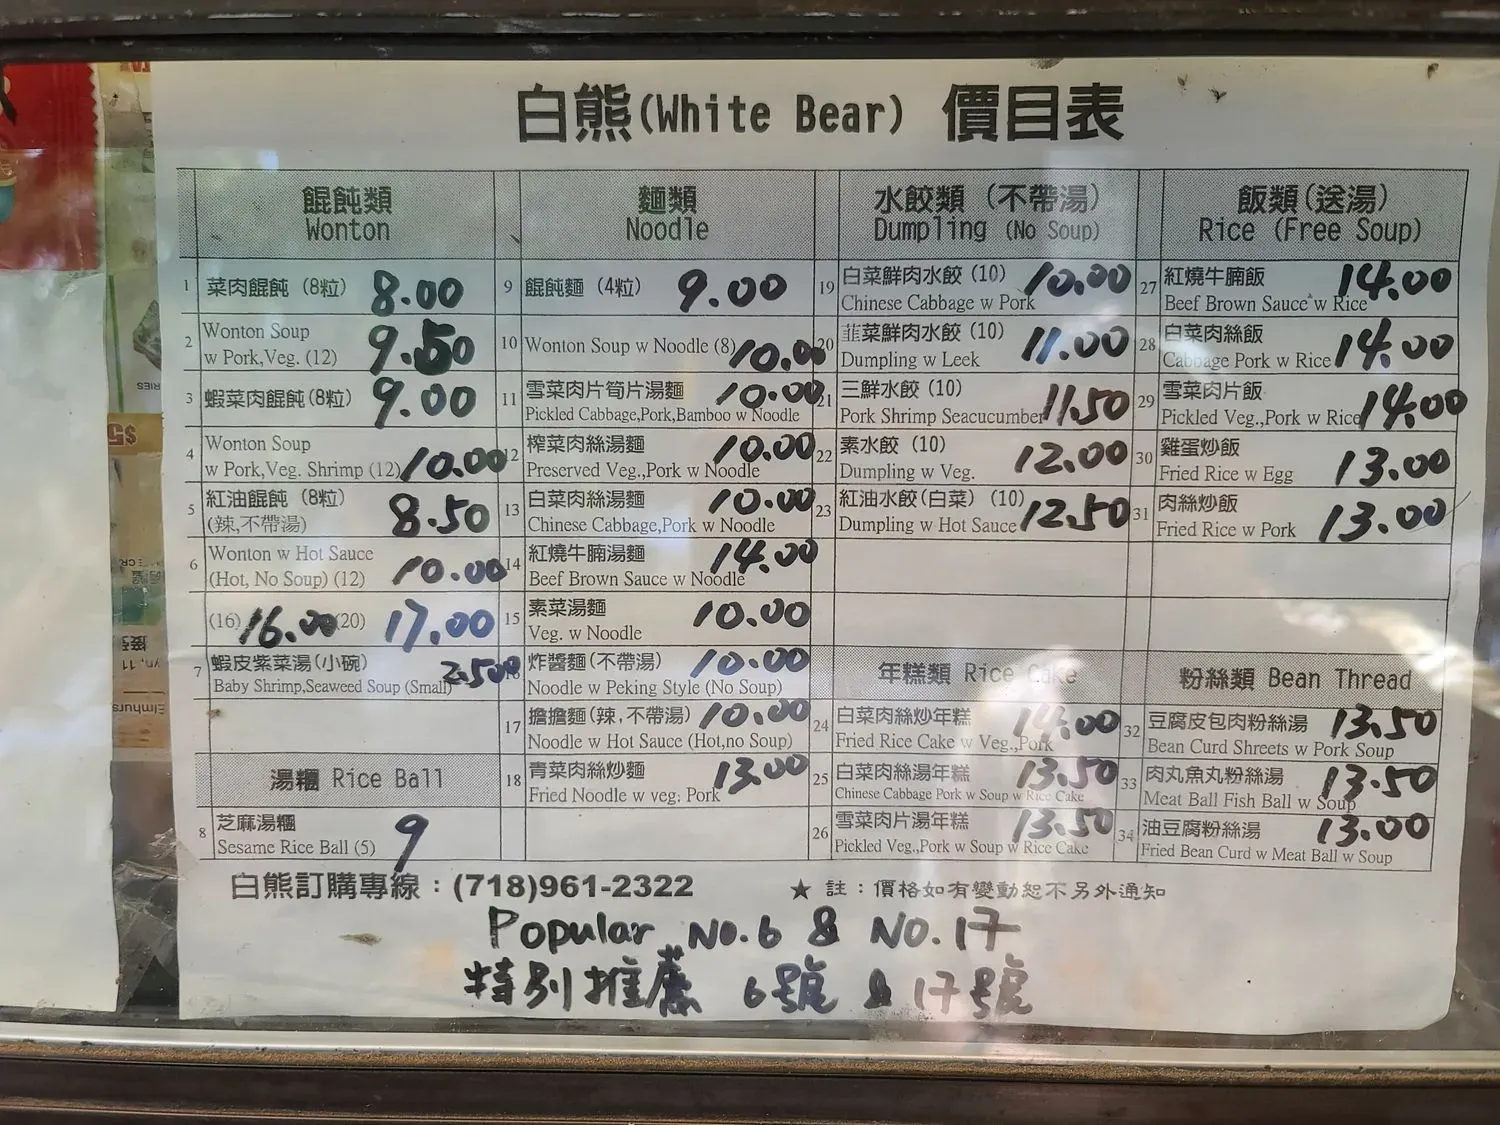 白熊(White Bear) 價目表
餛飩類
Wonton
1 菜肉餛飩 (8粒) 8.00
2 Wonton Soup
w Pork,Veg. (12) 9.50
3 蝦菜肉餛飩(8粒) 9.00
4 Wonton Soup
w Pork,Veg. Shrimp (12) 10.00
5 紅油餛飩 (8粒) 8.50
(辣,不帶湯)
6 Wonton w Hot Sauce
(Hot, No Soup) (12) 10.00
(16) 16.00 (20) 17.00
7 蝦皮紫菜湯(小碗) 2.50
Baby Shrimp,Seaweed Soup (Small)
湯糰 Rice Ball
8 芝麻湯糰 9
Sesame Rice Ball (5)
麵類
Noodle
9 餛飩麵 (4粒) 9.00
10 Wonton Soup w Noodle (8) 10.00
11 雪菜肉片筍片湯麵 10.00
Pickled Cabbage,Pork,Bamboo w Noodle
12 榨菜肉絲湯麵 10.00
Preserved Veg.,Pork w Noodle
13 白菜肉絲湯麵 10.00
Chinese Cabbage,Pork w Noodle
14 紅燒牛腩湯麵 14.00
Beef Brown Sauce w Noodle
15 素菜湯麵 10.00
Veg. w Noodle
16 炸醬麵(不帶湯) 10.00
Noodle w Peking Style (No Soup)
17 擔擔麵(辣,不帶湯) 10.00
Noodle w Hot Sauce (Hot,no Soup)
18 青菜肉絲炒麵 13.00
Fried Noodle w veg: Pork
水餃類 (不帶湯)
Dumpling (No Soup)
19 白菜鮮肉水餃 (10) 10.00
Chinese Cabbage w Pork
20 韮菜鮮肉水餃 (10) 11.00
Dumpling w Leek
21 三鮮水餃 (10) 11.50
Pork Shrimp Seacucumber
22 素水餃 (10) 12.00
Dumpling w Veg.
23 紅油水餃(白菜) (10) 12.50
Dumpling w Hot Sauce
年糕類 Rice Cake
24 白菜肉絲炒年糕 14.00
Fried Rice Cake w Veg.,Pork
25 白菜肉絲湯年糕 13.50
Chinese Cabbage Pork w Soup w Rice Cake
26 雪菜肉片湯年糕 13.50
Pickled Veg.,Pork w Soup w Rice Cake
飯類(送湯)
Rice (Free Soup)
27 紅燒牛腩飯 14.00
Beef Brown Sauce w Rice
28 白菜肉絲飯 14.00
Cabbage Pork w Rice
29 雪菜肉片飯 14.00
Pickled Veg.,Pork w Rice
30 雞蛋炒飯 13.00
Fried Rice w Egg
31 肉絲炒飯 13.00
Fried Rice w Pork
粉絲類 Bean Thread
32 豆腐皮包肉粉絲湯 13.50
Bean Curd Shreets w Pork Soup
33 肉丸魚丸粉絲湯 13.50
Meat Ball Fish Ball w Soup
34 油豆腐粉絲湯 13.00
Fried Bean Curd w Meat Ball w Soup
白熊訂購專線：(718)961-2322
★ 註：價格如有變動恕不另外通知
Popular No.6 & No.17
特別推薦 6號 & 17號